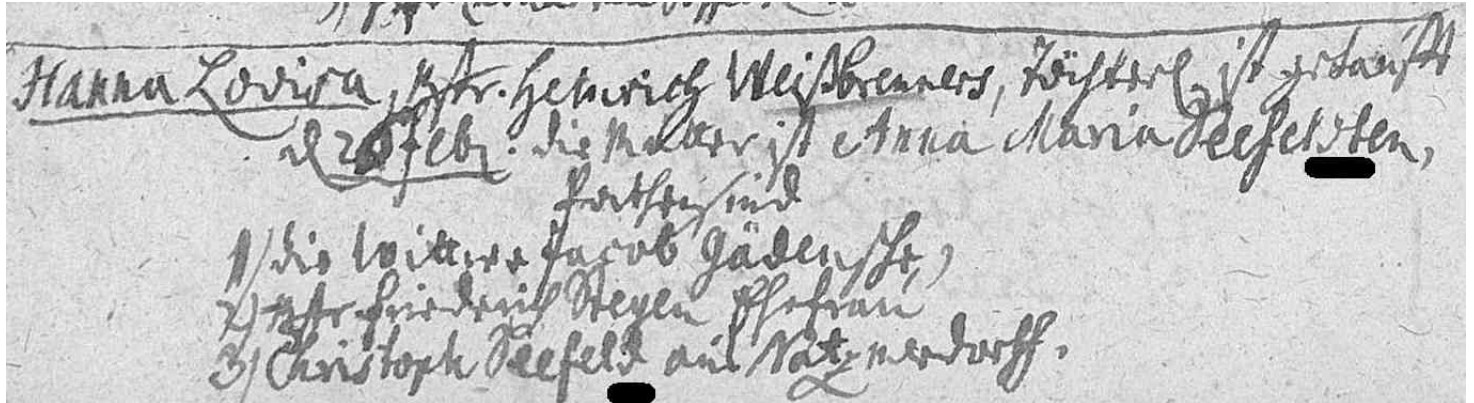 Hanna Lovisa, Mstr. Heinrich Weißbrenners, Töchterl. ist getaufft
d 26 Febr. die Mutter ist Anna Maria Seefeldten,
Pathen sind
1) die Wittwe Jacob Gädensche,
2) Mstr Friedrich Stegen Ehefrau
3) Christoph Seefeld aus Natzmerdorff.